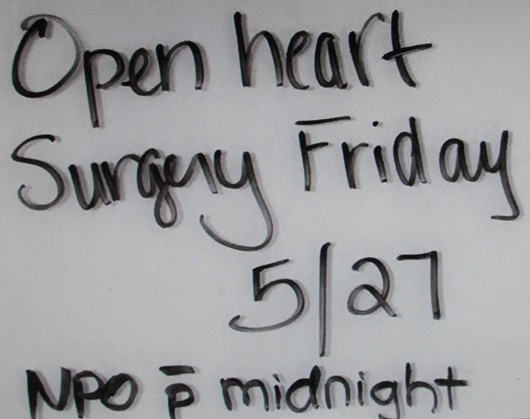 Open heart
Surgery Friday
5/27
NPO p̄ midnight